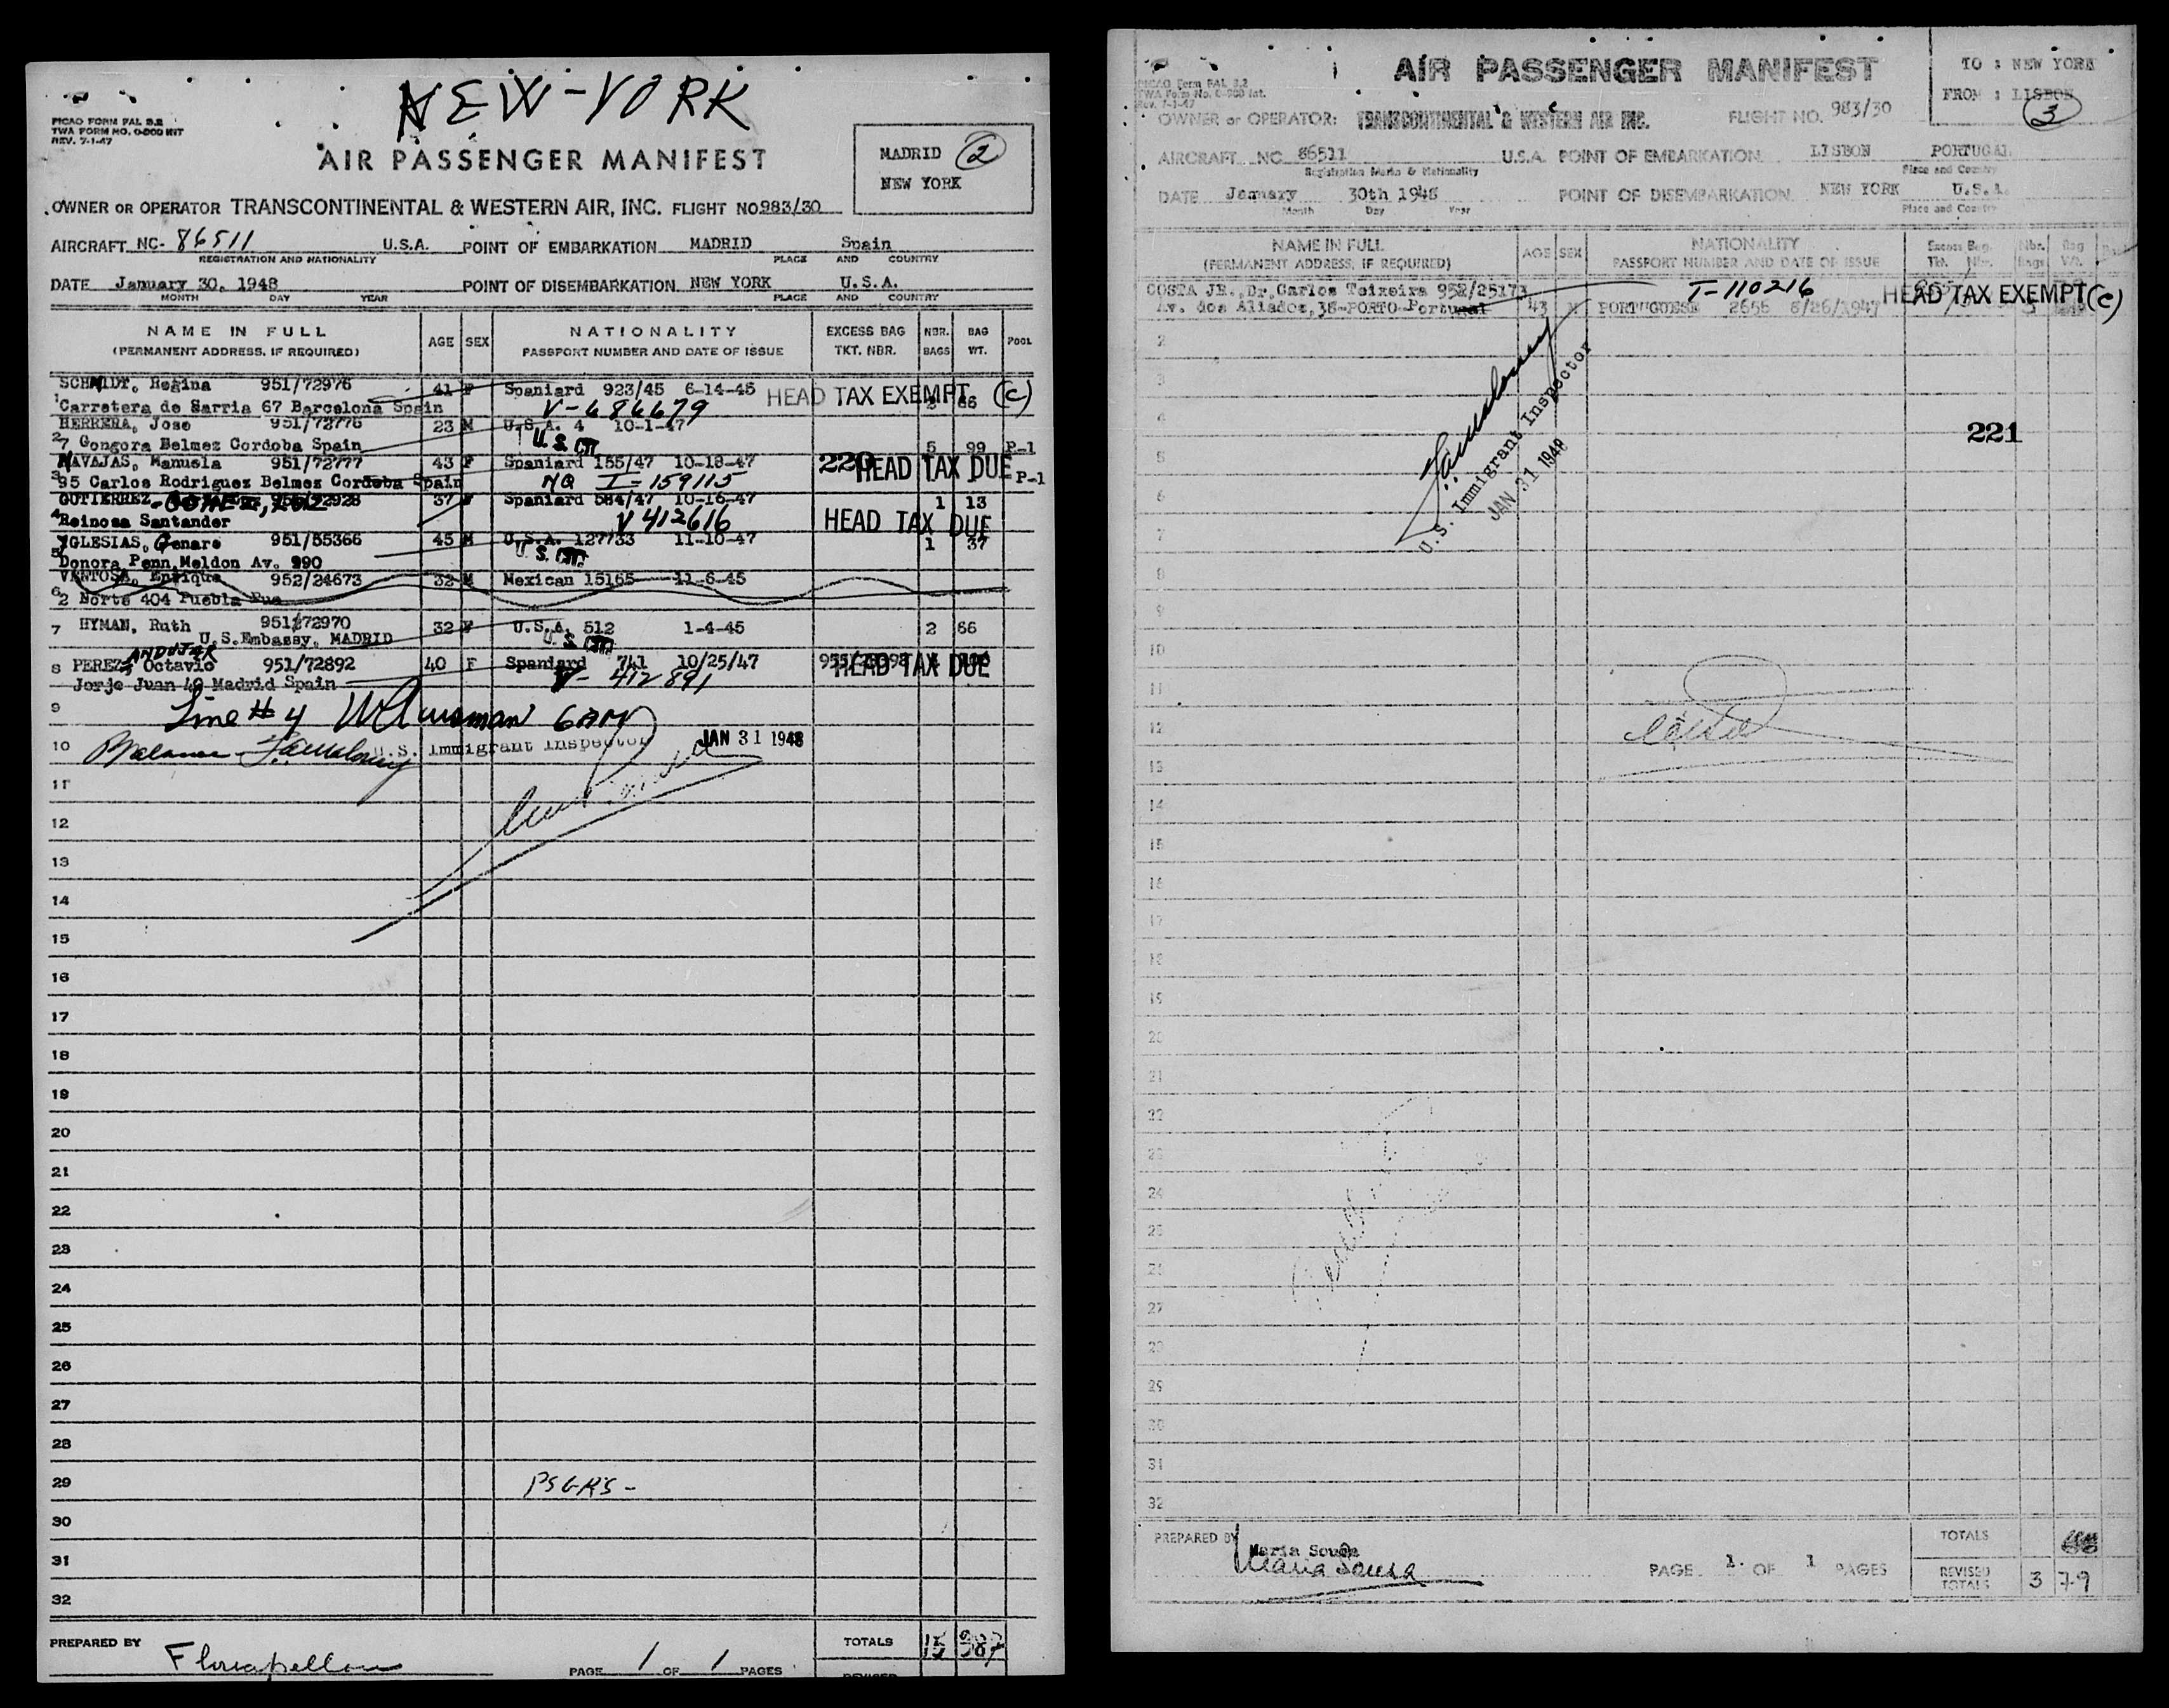 NEW-YORK
PICAO FORM PAL 3.2
TWA FORM NO. O-200 INT
REV. 7-1-47
AIR PASSENGER MANIFEST
MADRID 2
NEW YORK
OWNER OR OPERATOR TRANSCONTINENTAL & WESTERN AIR, INC. FLIGHT NO. 983/30
AIRCRAFT NC- 86511 U.S.A. POINT OF EMBARKATION MADRID Spain
REGISTRATION AND NATIONALITY PLACE AND COUNTRY
DATE January 30, 1948 POINT OF DISEMBARKATION NEW YORK U.S.A.
MONTH DAY YEAR PLACE AND COUNTRY
NAME IN FULL AGE SEX NATIONALITY EXCESS BAG NBR. BAG POOL
(PERMANENT ADDRESS, IF REQUIRED) PASSPORT NUMBER AND DATE OF ISSUE TKT. NBR. BAGS WT.
SCHMIDT, Regina 951/72976 41 F Spaniard 923/45 6-14-45 HEAD TAX EXEMPT (C)
1 Carretera de Sarria 67 Barcelona Spain V-686679 66
HERRERA, Jose 951/72776 23 M U.S.A. 4 10-1-47
2 7 Gongora Belmez Cordoba Spain U.S. CIT 5 99 P-1
NAVAJAS, Manuela 951/72777 43 F Spaniard 155/47 10-18-47 220 HEAD TAX DUE
3 95 Carlos Rodriguez Belmez Cordoba Spain NQ I-159115 P-1
GUTIERREZ- 37 F Spaniard 584/47 10-16-47 1 13
4 Reinosa Santander V 412616 HEAD TAX DUE
YGLESIAS, Genaro 951/55366 45 M U.S.A. 127733 11-10-47 1 37
5 Donora Penn, Meldon Av. 990 U.S. CIT
VENTOSA, Enrique 952/24673 32 M Mexican 15165 11-6-45
6 2 Norte 404 Puebla Pue
7 HYMAN, Ruth 951/72970 32 F U.S.A. 512 1-4-45 2 66
U.S.Embassy, MADRID U.S. CIT
ANDUJAR
8 PEREZ, Octavio 951/72892 40 F Spaniard 741 10/25/47 HEAD TAX DUE
Jorje Juan 49 Madrid Spain V- 412891
9 Line # 4
10 U.S. Immigrant Inspector JAN 31 1948
11
12
13
14
15
16
17
18
19
20
21
22
23
24
25
26
27
28
29 PSGRS-
30
31
32
PREPARED BY TOTALS 15 387
PAGE 1 OF 1 PAGES
AIR PASSENGER MANIFEST
TO : NEW YORK
FROM : LISBON
3
PICAO Form PAL 3.2
TWA Form No. O-200 Int.
Rev. 7-1-47
OWNER or OPERATOR: TRANSCONTINENTAL & WESTERN AIR INC. FLIGHT NO. 983/30
AIRCRAFT NC 86511 U.S.A. POINT OF EMBARKATION LISBON PORTUGAL
Registration Marks & Nationality Place and Country
DATE January 30th 1948 POINT OF DISEMBARKATION NEW YORK U.S.A.
Month Day Year Place and Country
NAME IN FULL AGE SEX NATIONALITY Excess Bag. Nbr. Bag
(PERMANENT ADDRESS, IF REQUIRED) PASSPORT NUMBER AND DATE OF ISSUE Tkt. Nbr. Bags Wt.
COSTA JR., Dr. Carlos Teixeira 952/25173 T-110216 HEAD TAX EXEMPT (C)
Av. dos Aliados, 38-PORTO-Portugal 43 M PORTUGUESE 2655 3
2
3
4
221
5
6
7
U.S. Immigrant Inspector
JAN 31 1948
8
9
10
11
12
13
14
15
16
17
18
19
20
21
22
23
24
25
26
27
28
29
30
31
32
PREPARED BY Maria Sousa TOTALS
Maria Sousa
PAGE 1 OF 1 PAGES REVISED TOTALS 3 79